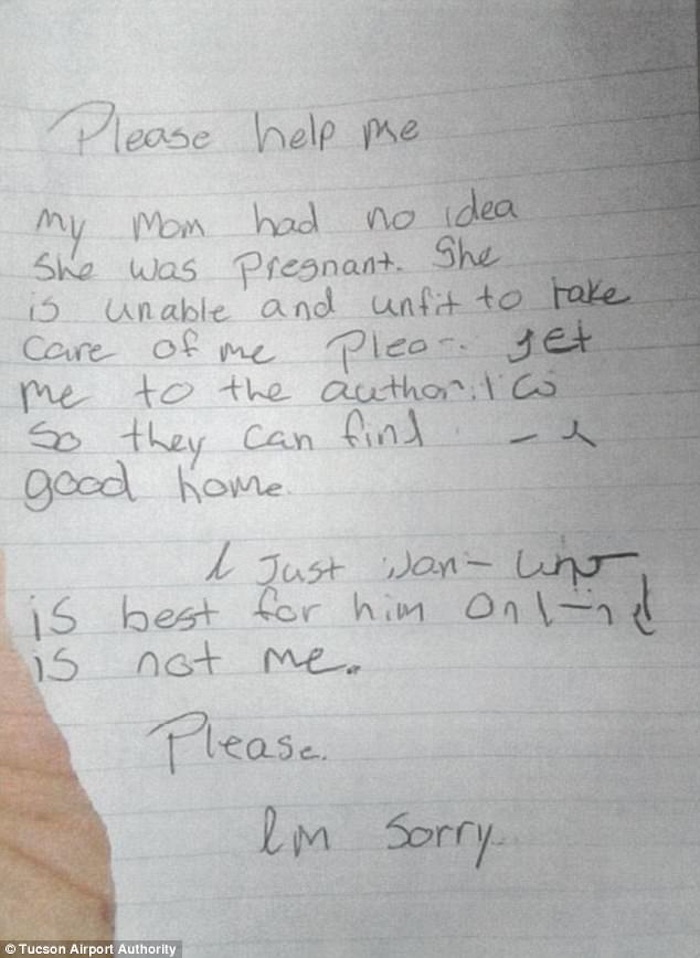 Please help me
my Mom had no idea
She was Pregnant. She
is unable and unfit to take
Care of me get
me to the
So they can find
good home.
I Just
is best for him
is not me.
Please.
Im Sorry.
© Tucson Airport Authority